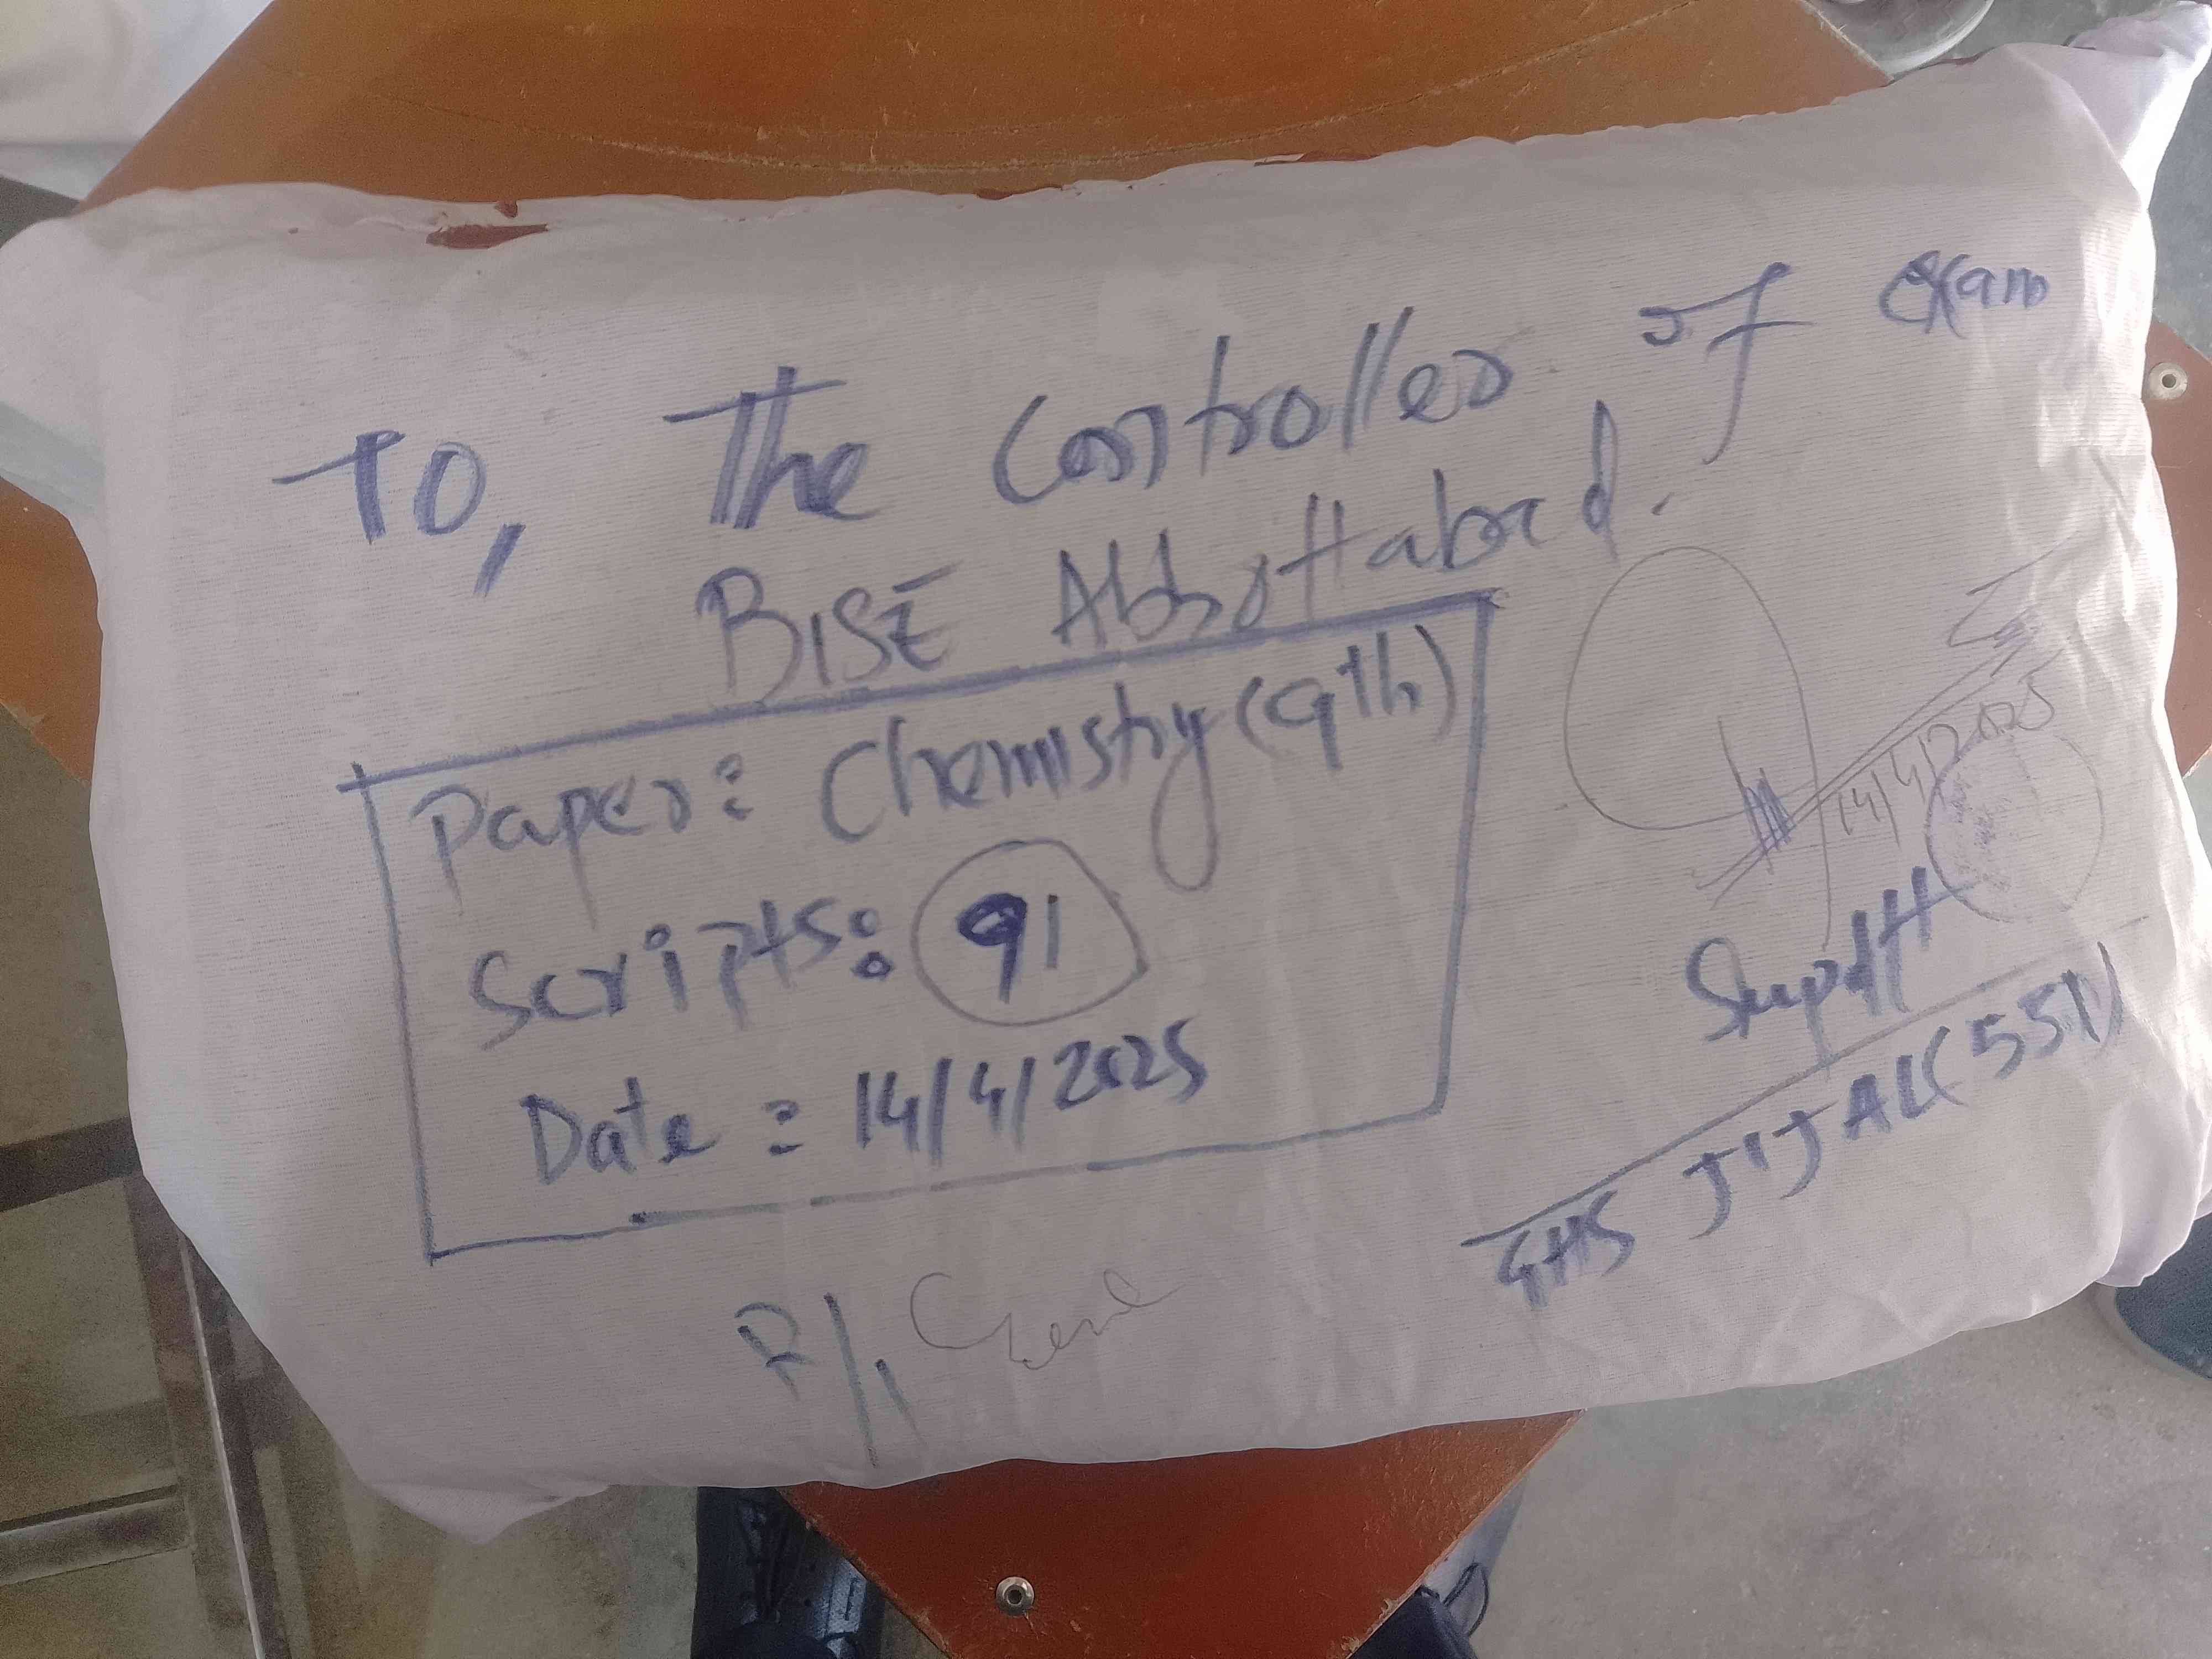 To, The Controller of Exam
BISE Abbottabad.
Paper: Chemistry (9th)
Scripts: 91
Date: 14/4/2025
14/4/2025
Supdtt
GHS JIJAL (551)
R/I